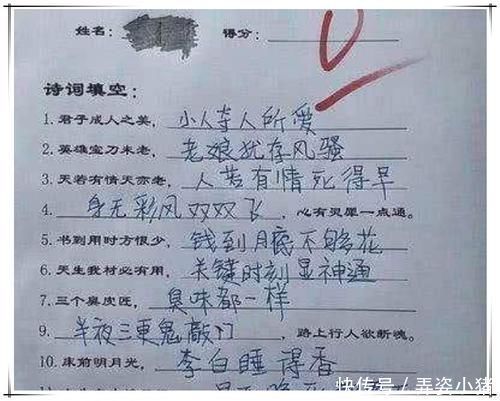 姓名： 得分：
0
诗词填空：
1. 君子成人之美，小人夺人所爱
2. 英雄宝刀未老，老娘犹存风骚
3. 天若有情天亦老，人若有情死得早
4. 身无彩凤双双飞，心有灵犀一点通。
5. 书到用时方恨少，钱到月底不够花
6. 天生我材必有用，关键时刻显神通
7. 三个臭皮匠，臭味都一样
9. 半夜三更鬼敲门，路上行人欲断魂。
10. 床前明月光，李白睡得香
快传号／弄姿小猪